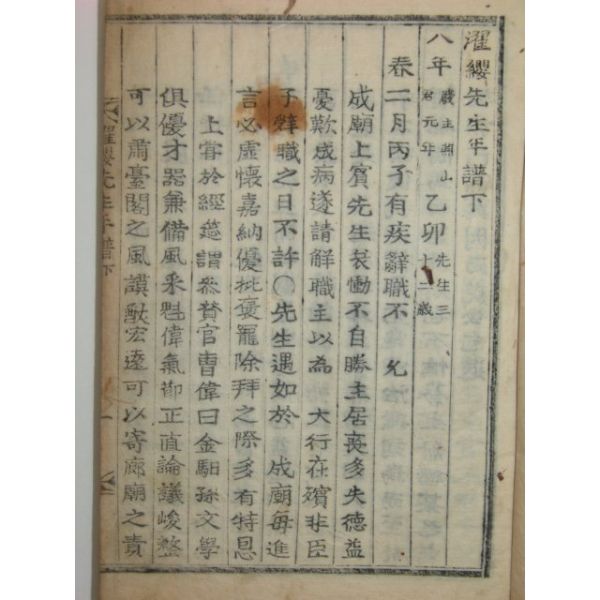 濯纓先生年譜下
八年 歲主燕山君元年 乙卯 先生三十二歲
春二月丙子有疾辭職不 允
成廟上賓先生哀慟不自勝主居喪多失德益
憂歎成病遂請解職主以為 大行在殯非臣
子辭職之日不許○先生遇知於 成廟每進
言必虛懷嘉納優批褒寵除拜之際多有特恩
上嘗於經筵謂參贊官曺偉曰金馹孫文學
俱優才器兼備風采魁偉氣節正直論議峻整
可以肅臺閣之風謨猷宏遠可以寄廊廟之責
濯纓先生年譜下 一